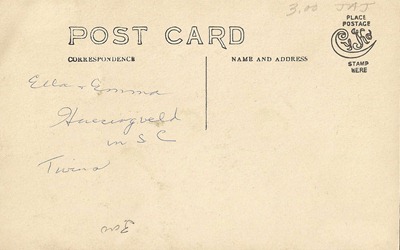 3.00 JAJ
POST CARD
CORRESPONDENCE
NAME AND ADDRESS
PLACE
POSTAGE
CyKo
STAMP
HERE
Ella & Emma
in SC
Twins